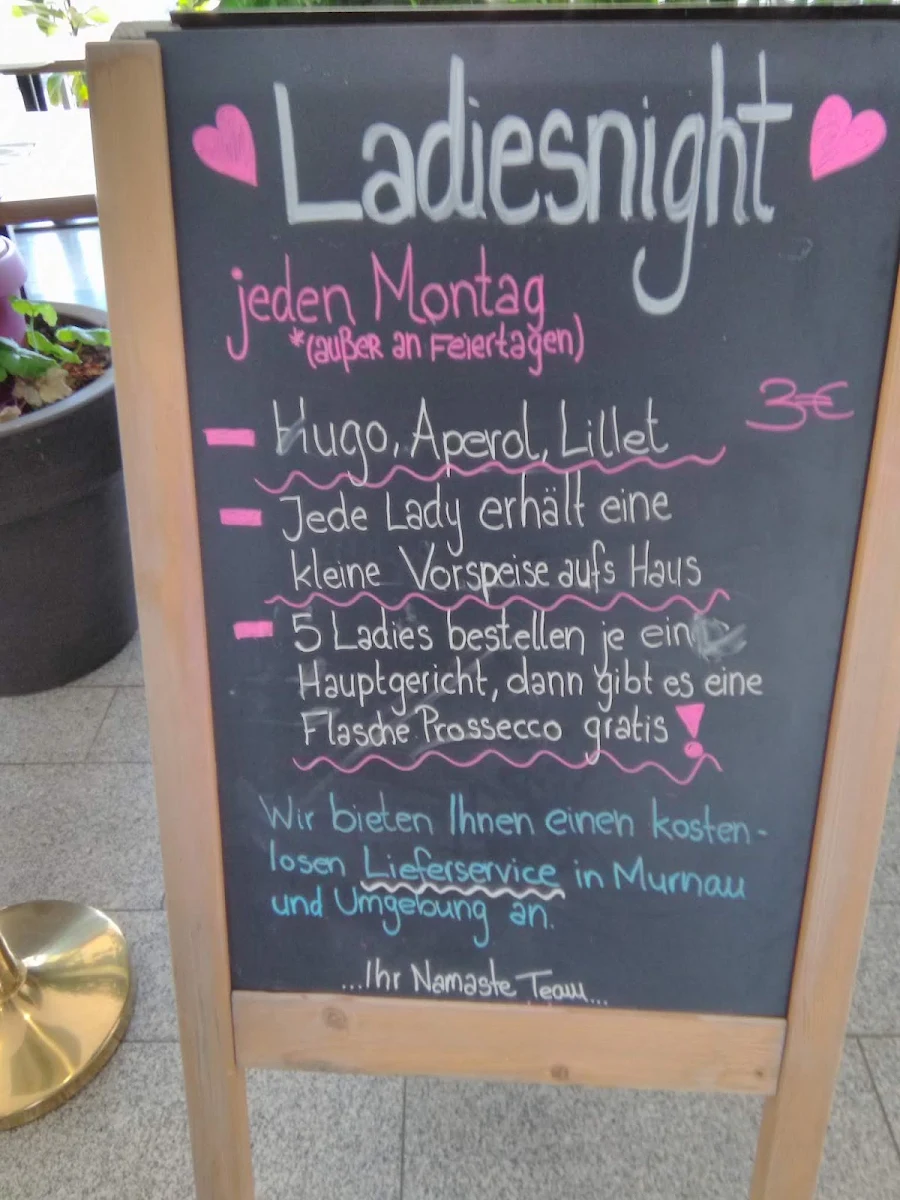 Ladiesnight
jeden Montag
*(außer an Feiertagen)
3€
Hugo, Aperol, Lillet
Jede Lady erhält eine
kleine Vorspeise aufs Haus
5 Ladies bestellen je ein
Hauptgericht, dann gibt es eine
Flasche Prossecco gratis!
Wir bieten Ihnen einen kosten-
losen Lieferservice in Murnau
und Umgebung an.
...Ihr Namaste Team...